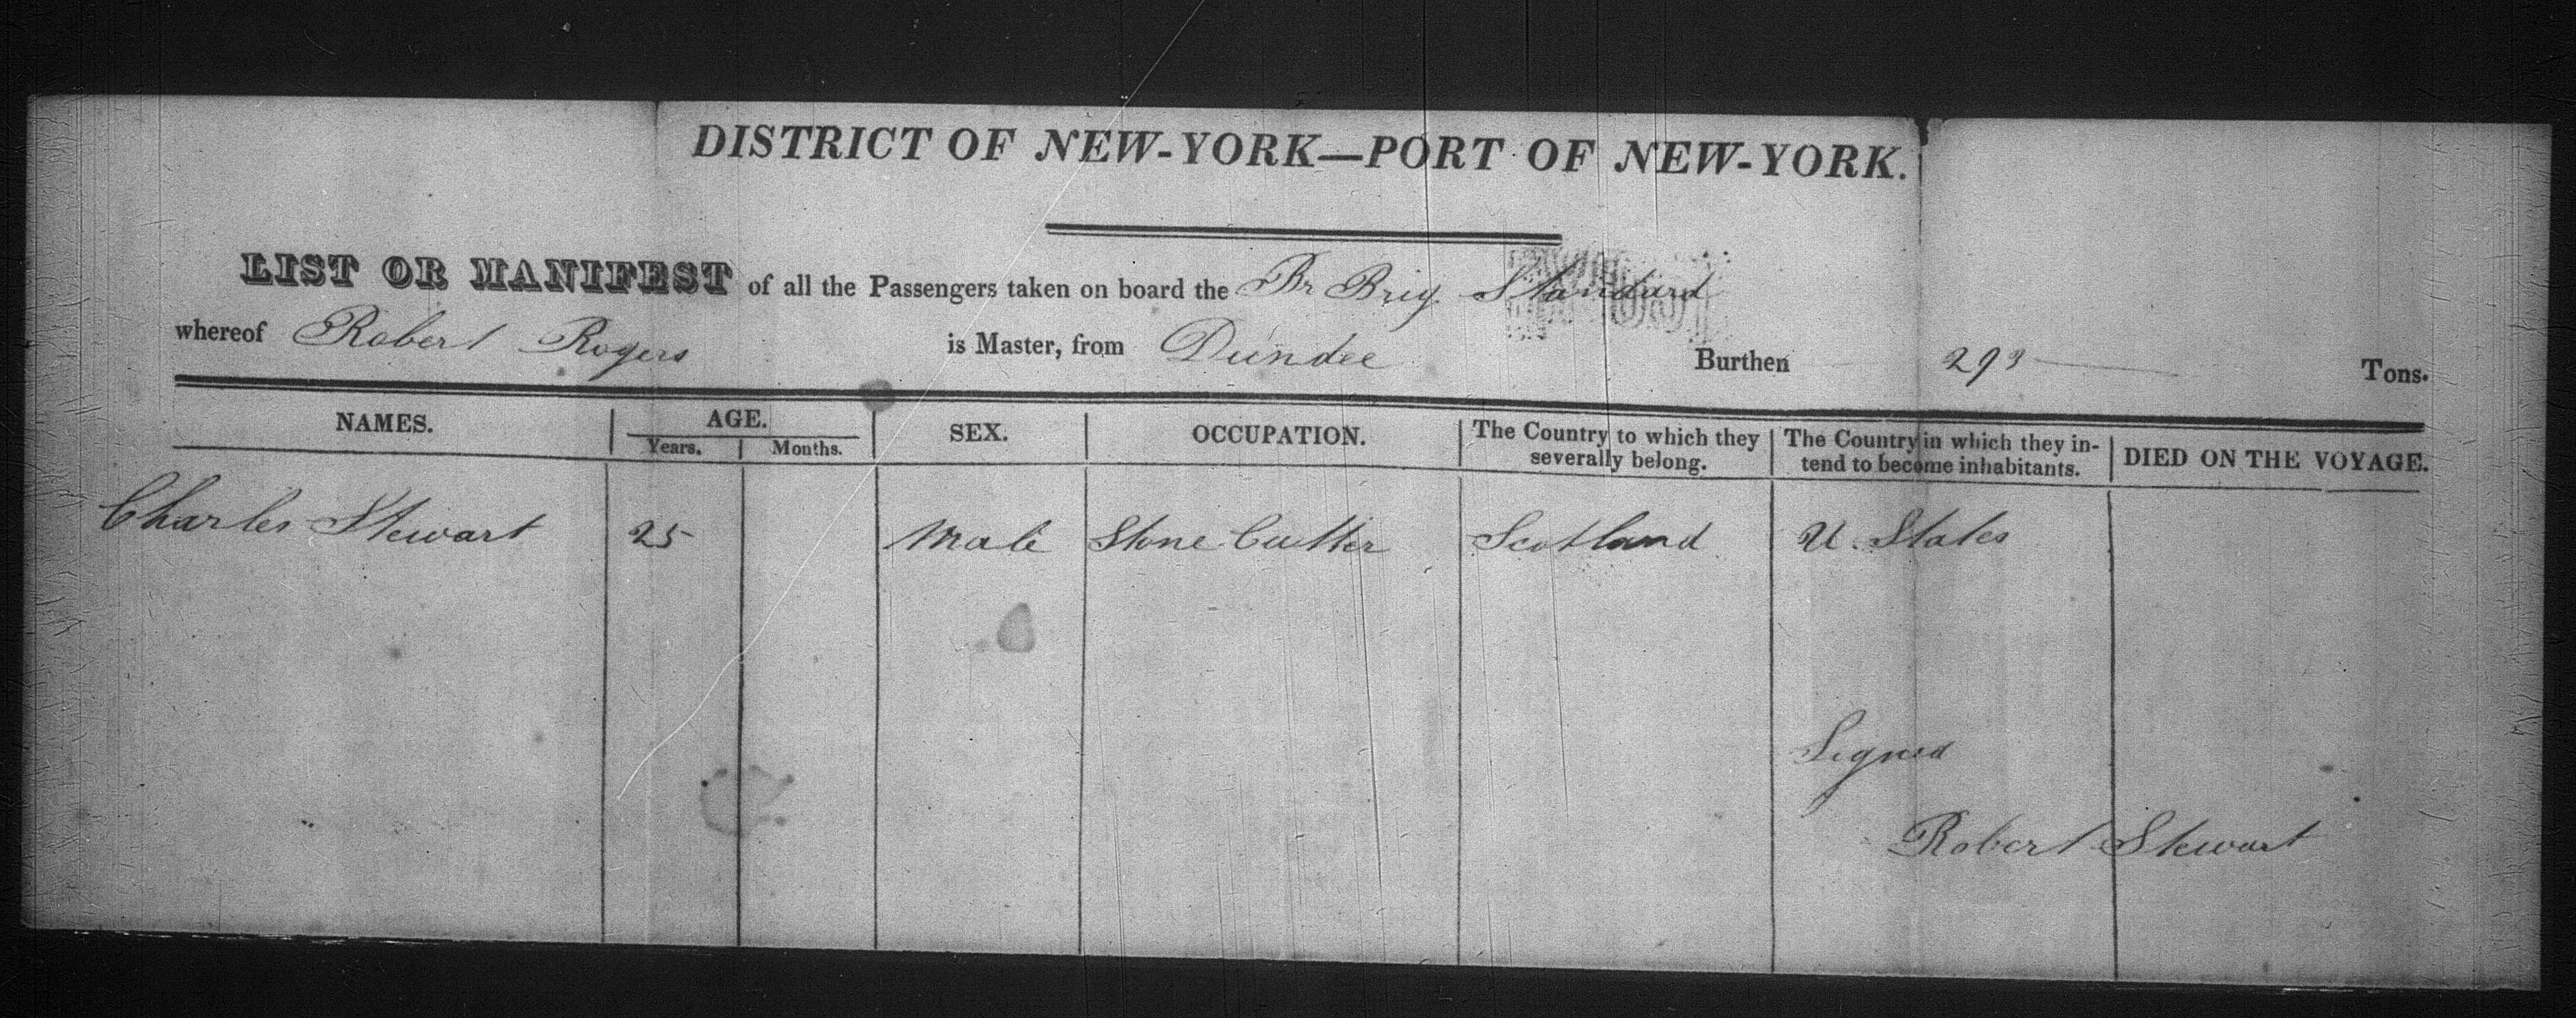 DISTRICT OF NEW-YORK—PORT OF NEW-YORK.
LIST OR MANIFEST of all the Passengers taken on board the Br Brig Standard
whereof Robert Rogers is Master, from Dundee Burthen 293 Tons.
NAMES. AGE. SEX. OCCUPATION. The Country to which they severally belong. The Country in which they intend to become inhabitants. DIED ON THE VOYAGE.
Years. Months.
Charles Stewart 25 Male Stone Cutter Scotland U. States
Signed
Robert Stewart